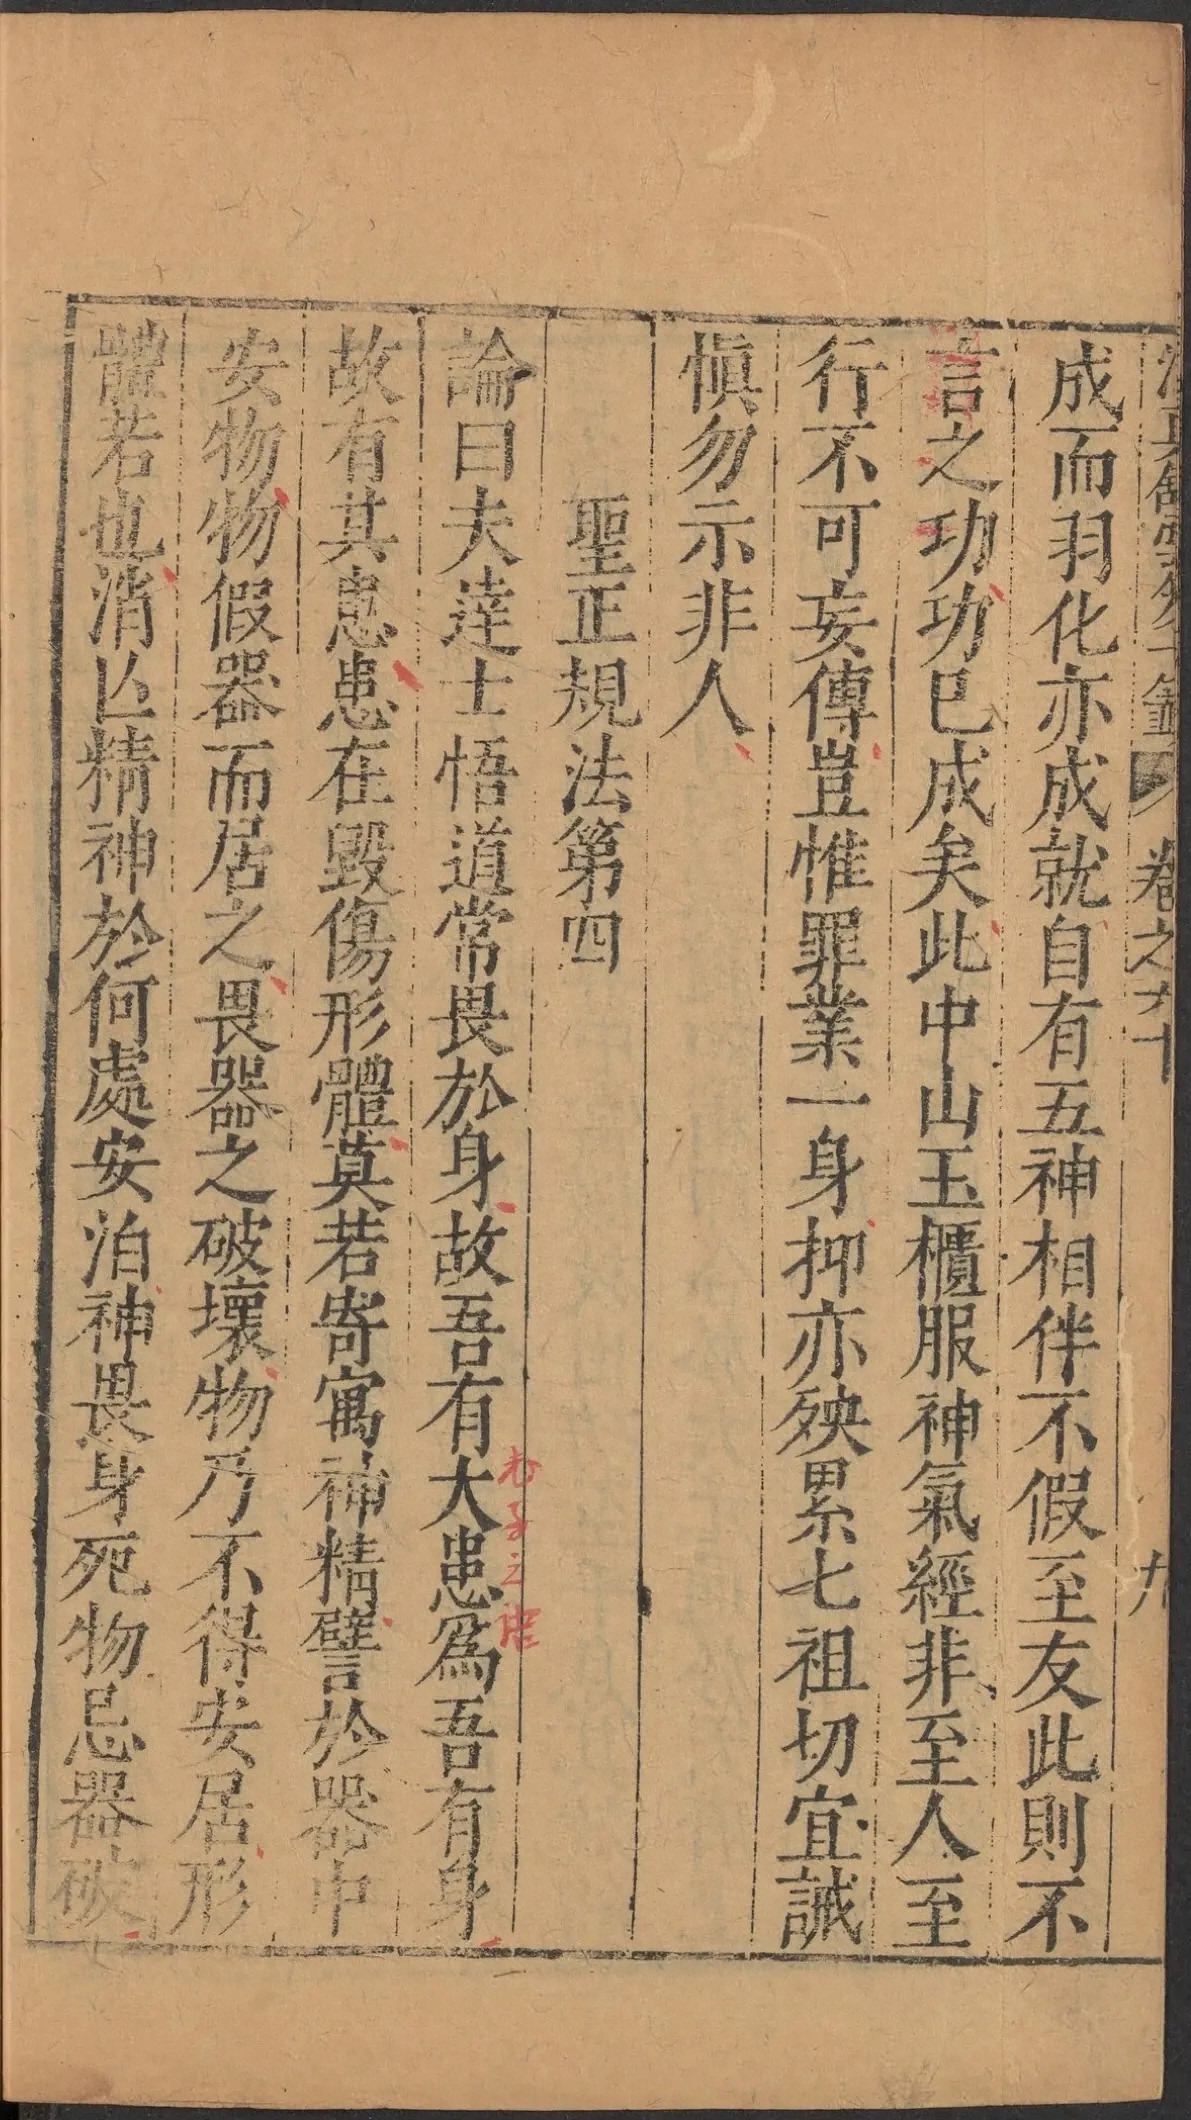 清真館雲笈七籤 卷之六十 九
成而羽化亦成就自有五神相伴不假至友此則不
言之功功巳成矣此中山玉櫃服神氣經非至人至
行不可妄傳豈惟罪業一身抑亦殃累七祖切宜誡
愼勿示非人
聖正規法第四
論曰夫達士悟道常畏於身故吾有大患爲吾有身
老子之語
故有其患患在毀傷形體莫若寄寓神精譬於器中
安物物假器而居之畏器之破壞物乃不得安居形
體若也消亾精神於何處安泊神畏身死物忌器破